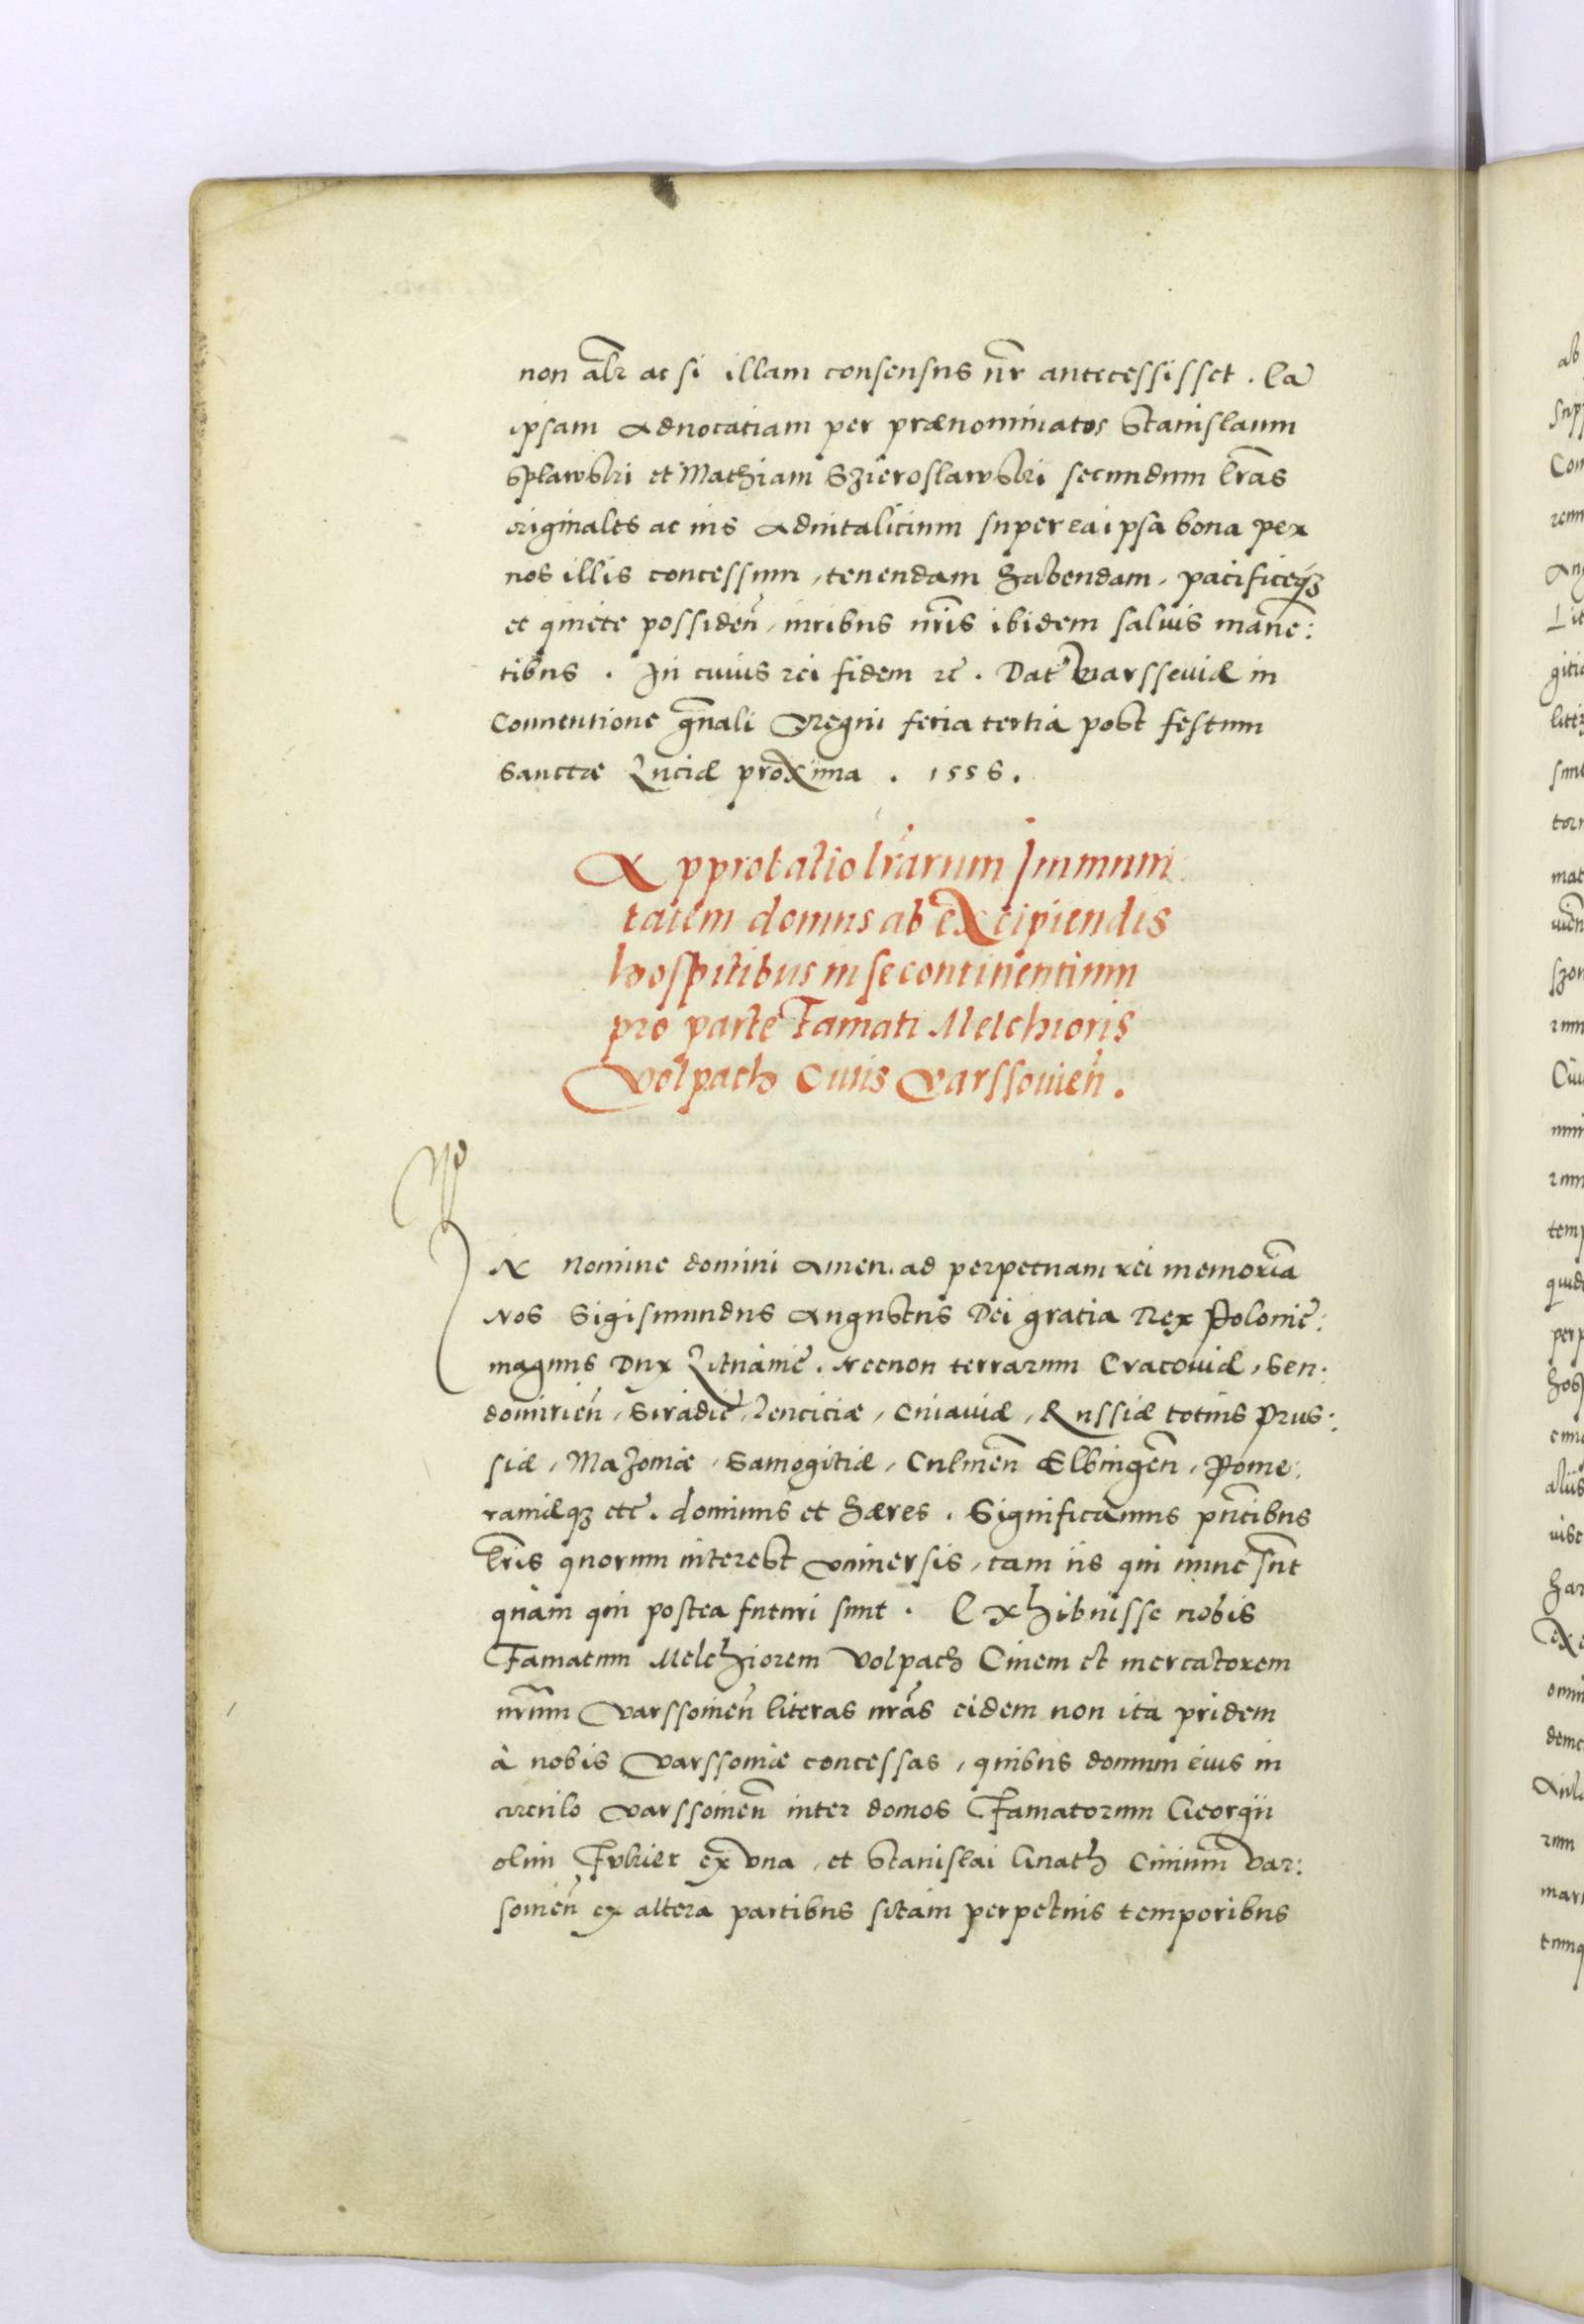 non alr ac si illam consensus nr̃ antecessisset. Eã
ipsam aduocatiam per prænominatos Stanislaum
Spławski et Mathiam Szierosławski secundum lr̃as
originales ac ius aduitalitium super ea ipsa bona per
nos illis concessum, tenendam habendam, pacificeqȝ
et quiete possideñ, iuribus nr̃is ibidem saluis mane:
tibus. In cuius rei fidem ꝛc̃. Dat̃ Varsseuiæ in
Conuentione gñali Regni feria tertia post festum
Sanctæ Luciæ proxima. 1556.
Approbatio lr̃arum Immuni
tatem domus ab excipiendis
hospitibus in se continentium
pro parte Famati Melchioris
Volpach Ciuis Varssouieñ.
IN Nomine domini Amen. ad perpetuam rei memoriã
Nos Sigismundus Augustus Dei gratia Rex Poloniẽ:
magnus Dux Lituaniẽ. Necnon terrarum Cracouiæ, Sen:
domirieñ, Siradiẽ, Lenciciæ, Cuiauiæ, Russiæ totius Prus:
siæ, Mazouiæ, Samogitiæ, Culmeñ Elbingeñ, Pome:
raniæqȝ etc̃. dominus et hæres. Significamus pñtibus
lr̃is quorum interest vniuersis, tam iis qui nunc sũt
quàm qui postea futuri sunt. Exhibuisse nobis
Famatum Melchiorem Volpach Ciuem et mercatorem
nr̃um Varssouieñ literas nr̃as eidem non ita pridem
à nobis Varssouiæ concessas, quibus domum eius in
circulo Varssouieñ inter domos Famatorum Georgii
olim Fukier ex vna, et Stanislai Gnath Ciuium Var:
souieñ ex altera partibus sitam perpetuis temporibus